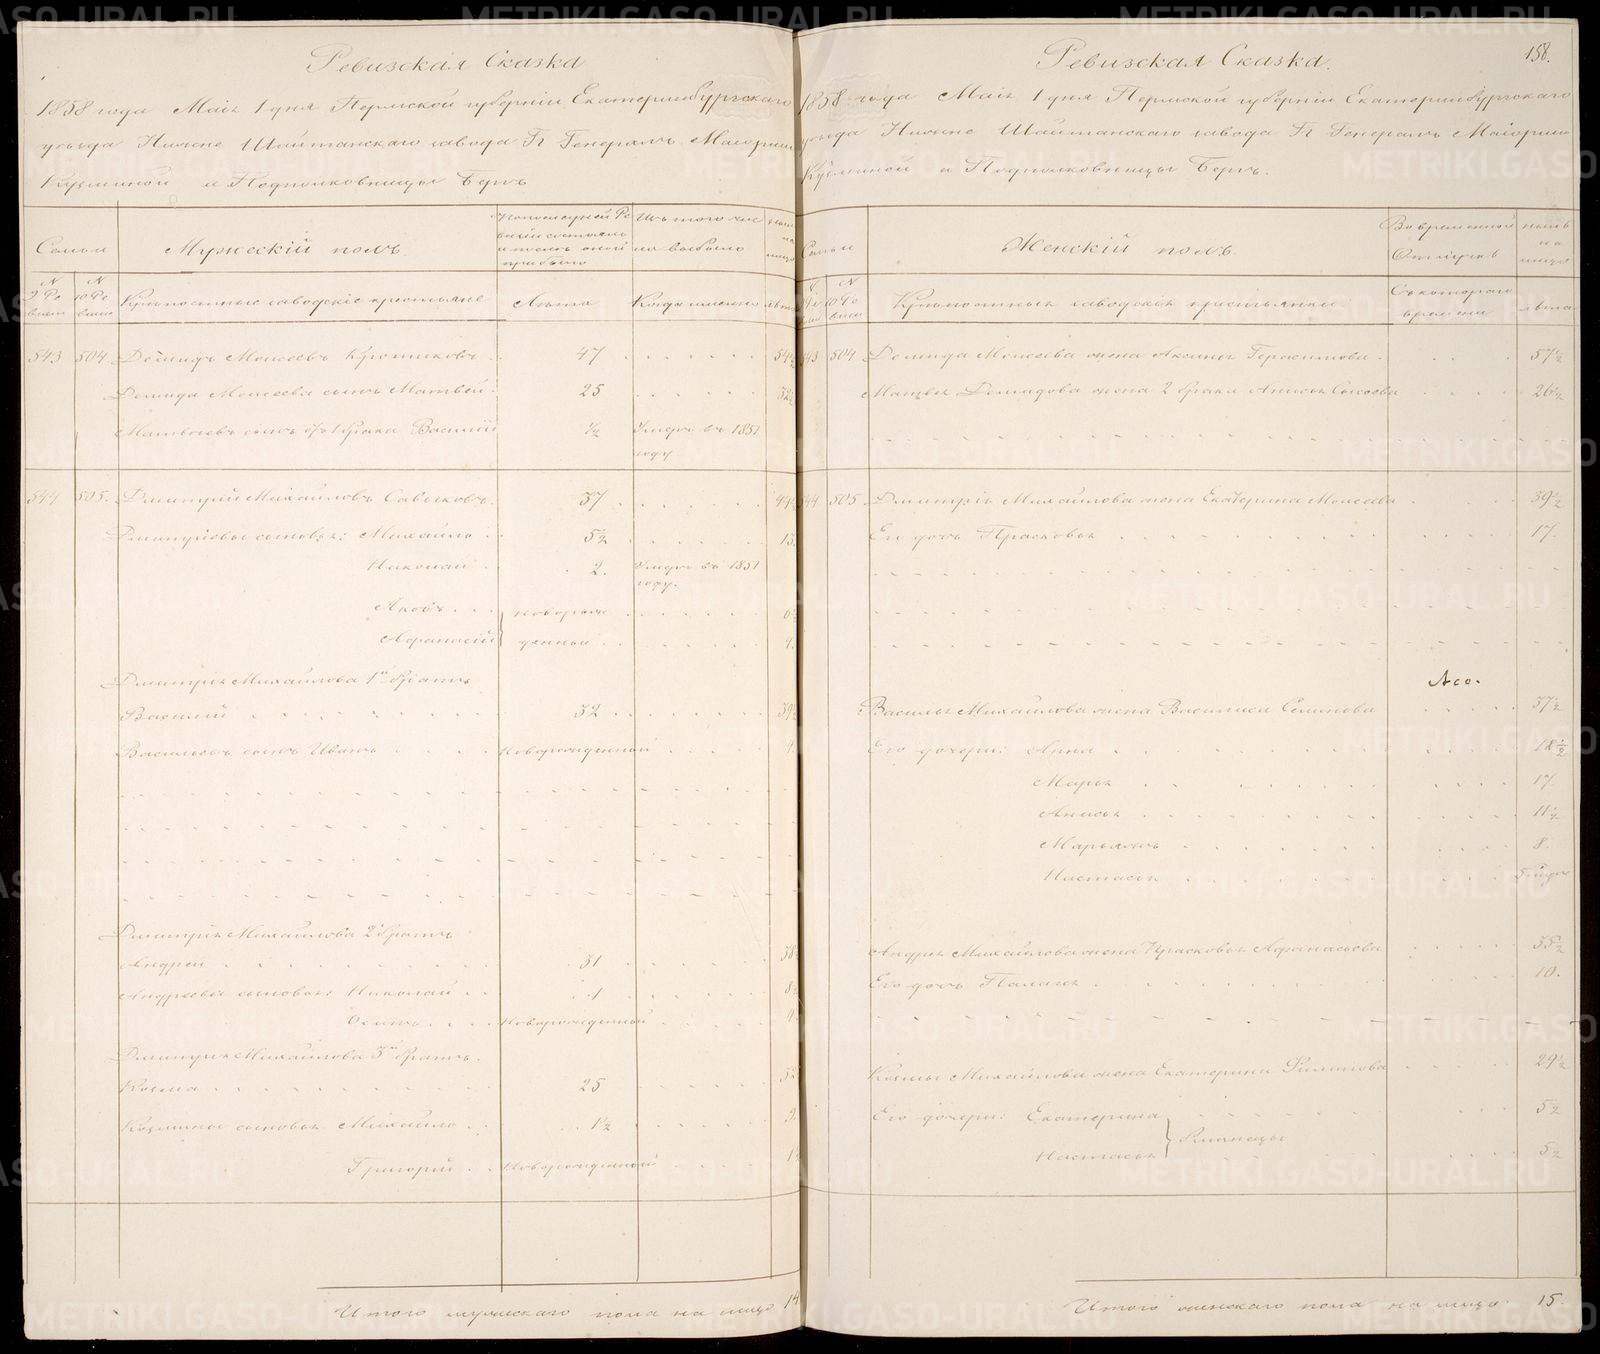 Ревизская Сказка
1858 года Маія 1 дня Пермской губерніи Екатеринбургскаго
уезда Нижне Шайтанскаго завода Гг Генералъ Маіорши
Кузьминой и Подполковницы Бергъ
Семьи
Мужескій полъ
По последней Ревизіи состояло и после оной прибыло
Изъ того числа выбыло
Ныне на лицо
N 9 Ревизіи
N 10 Ревизіи
Крепостные заводскіе крестьяне
Лета
Когда именно
лета
543 504 Демидъ Моисеевъ 47 54½
Демида Моисеева сынъ Матвей 25 32½
Матвеевъ сынъ отъ 1 брака Василій ¼ Умеръ въ 1851
году
544 505. Дмитрий Михайловъ Савыковъ 37 44½
Дмитріевы сыновья: Михайло 5½ 13.
Николай 2. Умеръ въ 1851
году.
Яковъ новорож
Афанасій денныи 4.
Дмитрія Михайлова 1й братъ
Василій 32 39½
Васильевъ сынъ Иванъ Новорожденный
Дмитрія Михайлова 2й братъ
Андрей 31 38½
Андреевы сыновья: Николай 1 8½
Осипъ Новорожденный 4.
Дмитрія Михайлова 3й братъ.
Козма 25
Козмины сыновья Михайло 1½ 9.
Григорій Новорожденный
Итого мужескаго пола на лицо 14
Ревизская Сказка.
158.
1858 года Маія 1 дня Пермской губерніи Екатеринбургскаго
уезда Нижне Шайтанскаго завода Гг Генералъ Маіорши
Кузьминой и Подполковницы Бергъ.
Семьи
Женскій полъ.
Во временной Отлучкѣ
ныне на лицо
N 9 Ревизіи
N 10 Ревизіи
Крепостныя заводскія крестьянки
Съ котораго времени
лета
543 504 Демида Моисеева жена Аксинья Герасимова 57½
Матвея Демидова жена 2 брака Анисья Сысоева 26½
544 505 Дмитрія Михайлова жена Екатерина Моисеева 39½
Его дочь Прасковья 17.
Василья Михайлова жена Василиса Семенова 37½
Его дочери: Анна 18½
Марья 17
Анисья 11½
Марьямъ 8
Настасья
Андрея Михайлова жена Прасковья Афанасьева 35½
Его дочь Палагея 10.
Козмы Михайлова жена Екатерина Филипова 29½
Его дочери: Екатерина 5½
близнецы
Настасья 5½
Итого женскаго пола на лицо. 15.
METRIKI.GASO-URAL.RU